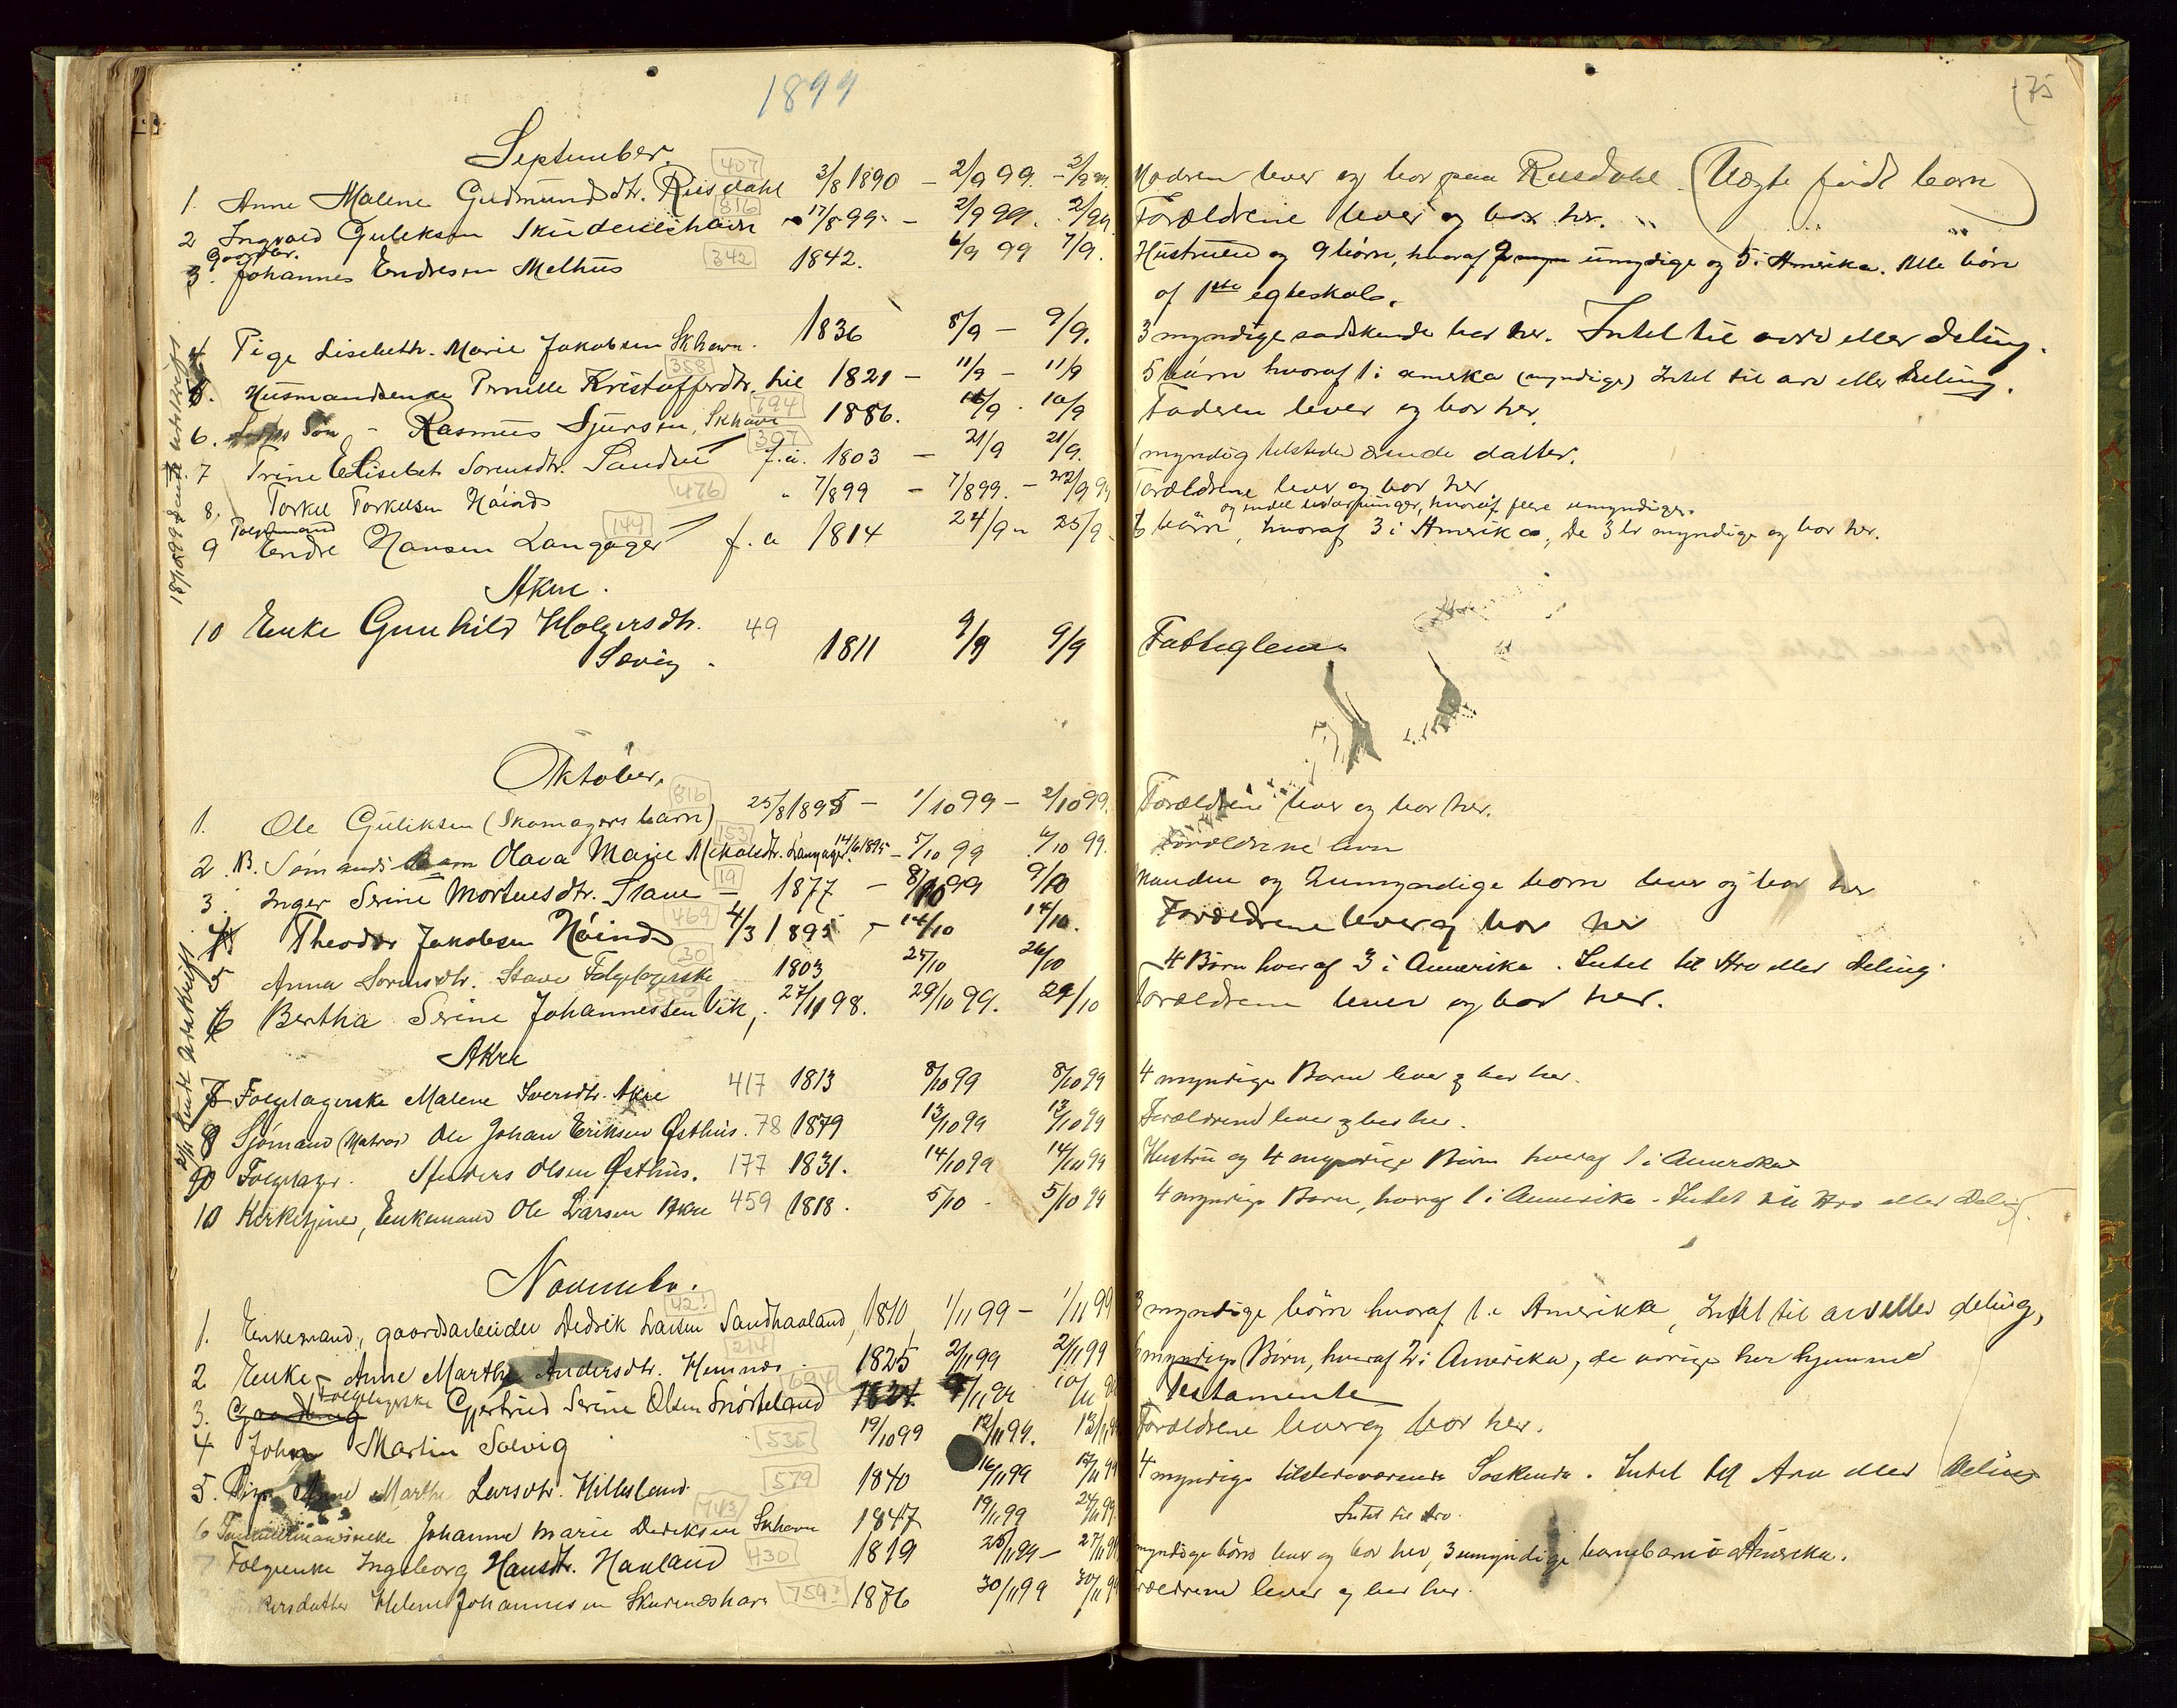 1899
75
September.
407
1. Anne Malene Gudmundsdtr. Risdahl 3/8 1890 – 2/9 99. – Moderen lever og bor paa Risdahl. (Uægte født barn)
816
2 Ingvald Guliksen Skudeneshavn 17/8 99 – 2/9 99. 2/9 99 Forældrene lever og bor her.
Gaardbr.
3. Johannes Endresen Melhus 342 1842. 6/9 99 7/9. Hustruen og 9 børn, hvoraf 2 umydige og 5 i Amerika. Alle børn
af 1ste egteskab.
4 Pige Lisebeth Marie Jakobsen Skhavn. 1836 8/9 – 9/9. 3 myndige sødskende bor her. Intet til arv eller deling.
358
5. Husmandsenke Pernille Kristoffersdtr. 1821 – 11/9 – 11/9 5 børn hvoraf 1 i amerika (myndige) Intet til arv eller deling.
794
6. Søn – Rasmus Sjursen, Skhavn 1886. 16/9. 10/9 Faderen lever og bor her.
307
7 Trine Elisebet Sorensdtr. Sandve f.a. 1803 – 21/9 21/9. 1 myndig tilstedeværende datter.
476
8. Torkel Torkelsen Høinds 7/8 99 – 7/8 99. – 22/9 99 Forældrene lever og bor her
144
9 Endre Hansen Langager f.a 1814 24/9 25/9 6 børn, hvoraf 3 i Amerika, De 3 er myndige og bor her.
18/10 99 sendt udskrift
Akre.
10 Enke Gunhild Holgersdtr. 49
Sævig. 1811 9/9 9/9 Fattiglem
Oktober.
816
1. Ole Guliksen (Skomagers barn) 25/8 1895 – 1/10 99 – 2/10 99. Forældrene lever og bor her.
153
2. B. Sømands barn Olava Marie Mikalsdtr. Langager 14/6 1895 – 5/10 99 6/10 99. Forældrene lever
19
3. Inger Serine Mortensdtr. Stave – 1877 – 8/10 99 9/10 Manden og 2 umyndige børn lever og bor her
469
4 Theodor Jakobsen Høinds 4/3 1895 – 14/10 14/10. Forældrene lever og bor her
30
5 Anna Sorensdtr. Stave Følgetagerske 1803 25/10 26/10 4 Børn hvoraf 3 i Amerika. Intet til Arv eller Deling.
6 Bertha Serine Johannessen Vik, 27/11 98. 29/10 99. 29/10 Forældrene lever og bor her.
2/11 sendt udskrift
Akre
7 Følgetagerske Malene Iversdtr. Akre 417 1813 8/10 99 8/10 99 4 myndige Børn lever og bor her.
8 Sjømand (Matros) Ole Johan Eriksen Østhus. 78 1879 13/10 99 13/10 99 Forældrene lever og bor her.
9 Følgetager. Anders Olsen Østhus. 177 1831. 14/10 99 14/10 99 Hustru og 4 myndige Børn hvoraf 1 i Amerika
10 Kirketjener, Enkemand Ole Larsen Akre 459 1818. 5/10 – 5/10 99 4 myndige Børn, hvoraf 1 i Amerika – Intet til Arv eller Deling.
November.
42!
1. Enkemand, gaardsarbeider Dedrik Larsen Sandhaaland, 1810 1/11 99 – 1/11 99 3 myndige børn hvoraf 1 i Amerika, Intet til arv eller deling,
214
2 Enke – Anne Marthe Andersdtr. Hemnes. 1825 2/11 99 2/11 99 myndige Børn, hvoraf 2 i Amerika, de øvrige her hjemme
694
3. Følgetagerske Gjertrud Serine Olsen Snørteland 1824. Testamente
4 John Martin Solvig 535 19/10 99 12/11 99. 13/11 99 Forældrene lever og bor her.
5. Pige Anne Marthe Larsdtr. Hillesland. 579 1840 16/11 99 17/11 99 4 myndige tilstedeværende Søskende. Intet til Arv eller Deling
743
6 Johanne Marie Dedriksen Skhavn 1847 19/11 99 24/11 99 Intet til Arv.
7 Følgeenke Ingeborg Hansdtr. Hauland 430 1819 25/11 99 – 27/11 99 myndige børn lever og bor her, 3 umyndige barnebarn i Amerika.
Helene Johannesen Skudeneshavn 759 1876 30/11 99 30/11 99 Forældrene lever og bor her.